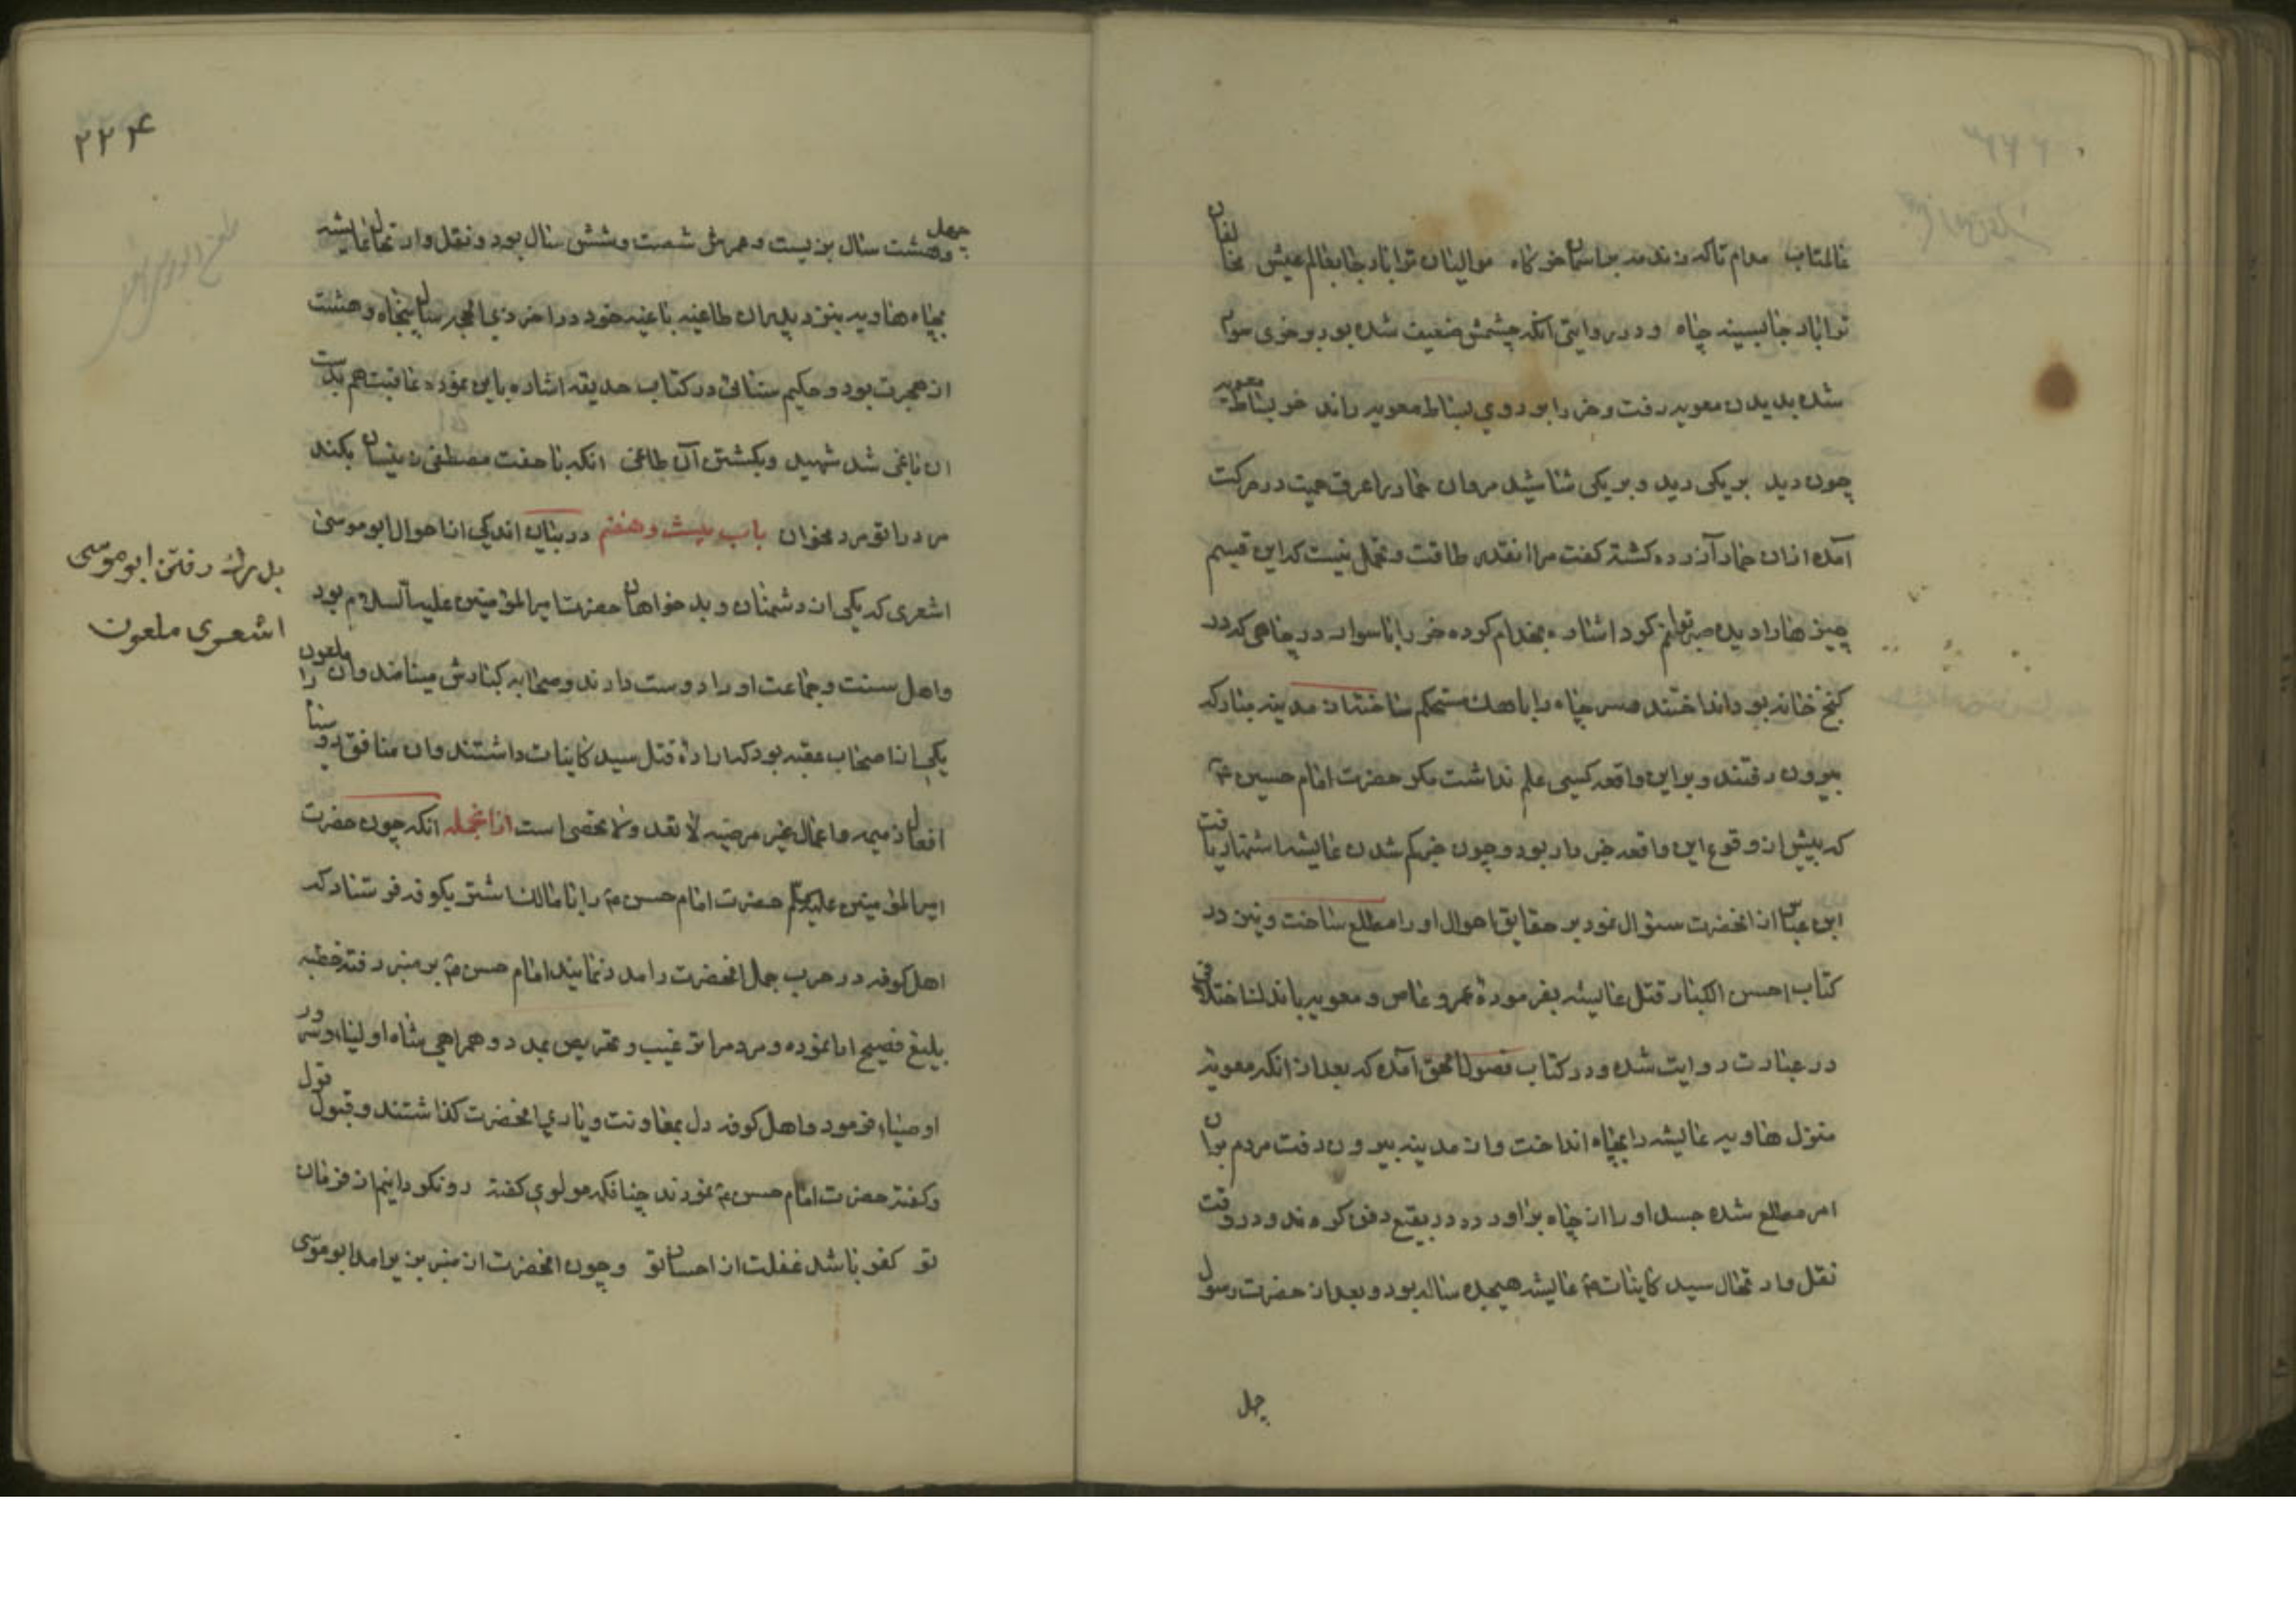 عالمتاب مدام تا که زند مه بر اسمان خرگاه موالیان ترا باد جا بعالم عیش مخالفان
ترا باد جا بسینه چاه و در روایتی انکه چشمش ضعیف شده بود بر خری سوار
شده بدیدن معویه رفت و خر را بر روی بساط معویه راند خر بساط معویه
چون دید بر یکی رید و بر یکی شاشید مروان حمار را عرق حمیت در حرکت
آمده ازان حمار آزرده کشته کفت مرا انقدر طاقت و تحمل نیست که این قسم
چیزها را دیده صبر توانم کرد اشاره بخدام کرده خر را با سوار در چاهی که در
کنج خانه بود انداختند و سر چاه را با اهک مستحکم ساخته از مدینه مبارکه
بیرون رفتند و بر این واقعه کسی علم نداشت مکر حضرت امام حسین ع
که پیش از وقوع این واقعه خبردار بود و چون خبر کم شدن عایشه اشتهار یافت
ابن عباس از انحضرت سئوال نمود بر حقایق احوال او را مطلع ساخت و نیز در
کتاب احسن الکبار قتل عایشه بفرموده عمرو عاص و معویه باندک اختلافی
در عبارت روایت شده و در کتاب فصول الحق آمده که بعد از انکه معویه
منزل هاویه عایشه را بچاه انداخت و از مدینه بیرون رفت مردم بران
امر مطلع شده جسد او را از چاه براورده در بقیع دفن کردند و در وقت
نقل و ارتحال سید کاینات ص عایشه هیجده ساله بود و بعد از حضرت رسول
چل
۲۲۴
چهل
وهشت سال بزیست و عمرش شصت و شش سال بود و نقل و ارتحال عایشه
بچاه هاویه بتزویر ان طاغیه باغیه خود در اخر ذی الحجه سال پنجاه و هشت
از هجرت بود و حکیم سنائی در کتاب حدیقه اشاره باین نموده عاقبت هم بدست
ان باغی شد شهید و بکشتش آن طاغی انکه با جفت مصطفی زینسان بکند
مر ورا تو مرد مخوان باب بیست و هفتم در بیان اندکی از احوال ابو موسی
اشعری که یکی از دشمنان و بدخواهان حضرت امیر المؤمنین علیه السلام بود
واهل سنت و جماعت او را دوست دارند و صحابه کبارش مینامند و ان ملعون را
یکی از اصحاب عقبه بود که اراده قتل سید کاینات داشتند و ان منافق روسیا
افعال ذمیمه و اعمال غیر مرضیه لا تعد ولا تحصی است ازانجمله انکه چون حضرت
امیر المؤمنین علیه السلم حضرت امام حسن ع را با مالک اشتر بکوفه فرستاد که
اهل کوفه در حرب جمل انحضرت را مدد نمایند امام حسن ع بر منبر رفته خطبه
بلیغ فصیح ادا نموده و مردم را ترغیب و تحریص بمدد و همراهی شاه اولیا و سرور
اوصیا فرمود و اهل کوفه دل بمعاونت ویاری انحضرت کذاشتند و قبول قول
و کفته حضرت امام حسن ع نمودند چنانکه مولوی کفته رو نکردانیم از فرمان
تو کفر باشد غفلت از احسان تو و چون انحضرت از منبر بزیر امد ابو موسی
بدرک رفتن ابو موسی
اشعری ملعون